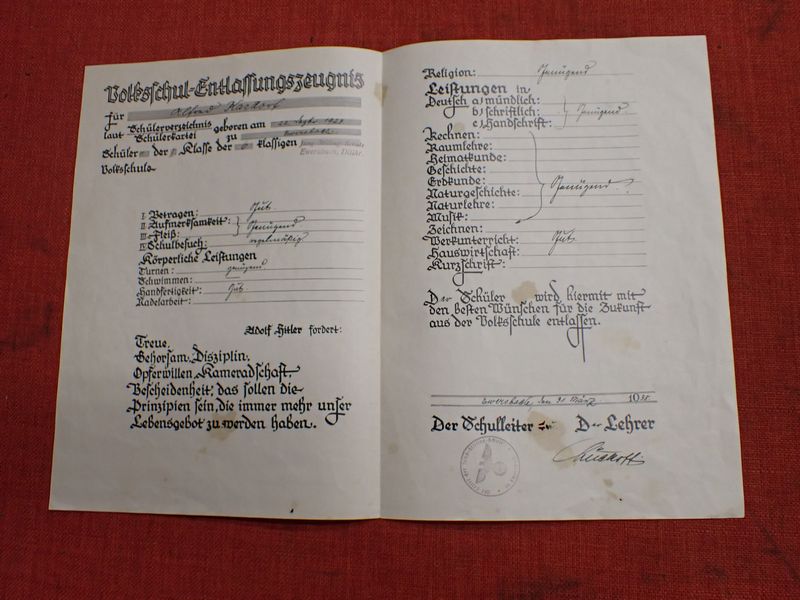 Volksschul-Entlassungszeugnis
für Alfred
laut Schülerverzeichnis geboren am
Schülerkartei zu
Schüler der Klasse der 8 klassigen
Volksschule
I. Betragen: Gut
II. Aufmerksamkeit: } Genügend
III. Fleiß:
IV. Schulbesuch: regelmäßig
Körperliche Leistungen
Turnen: genügend
Schwimmen:
Handfertigkeit: Gut
Nadelarbeit:
Adolf Hitler fordert:
Treue,
Gehorsam, Disziplin,
Opferwillen, Kameradschaft,
Bescheidenheit, das sollen die
Prinzipien sein, die immer mehr unser
Lebensgebot zu werden haben.
Religion: Genügend
Leistungen in
Deutsch a) mündlich:
b) schriftlich: } Genügend.
c) Handschrift:
Rechnen:
Raumlehre:
Heimatkunde:
Geschichte:
Erdkunde:
Naturgeschichte: } Genügend.
Naturlehre:
Musik:
Zeichnen:
Werkunterricht: Gut
Hauswirtschaft:
Kurzschrift:
Der Schüler wird hiermit mit
den besten Wünschen für die Zukunft
aus der Volksschule entlassen.
den März 19
Der Schulleiter Der Lehrer